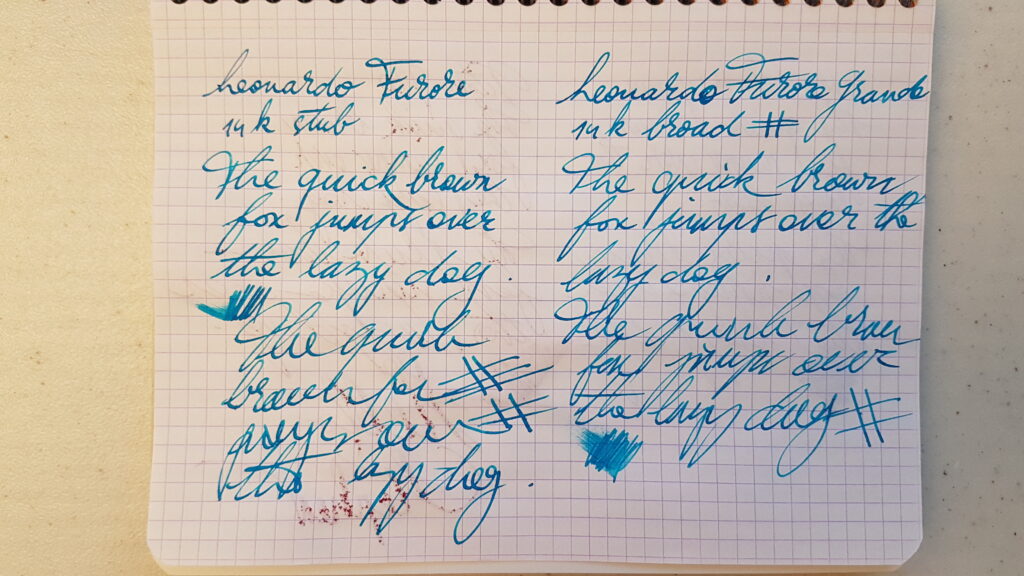 Leonardo Furore
14k stub
The quick brown
fox jumps over
the lazy dog.
The quick
brown fox #
jumps over #
the lazy dog.
Leonardo Furore Grande
14k broad #
The quick brown
fox jumps over the
lazy dog.
The quick brown
fox jumps over
the lazy dog #